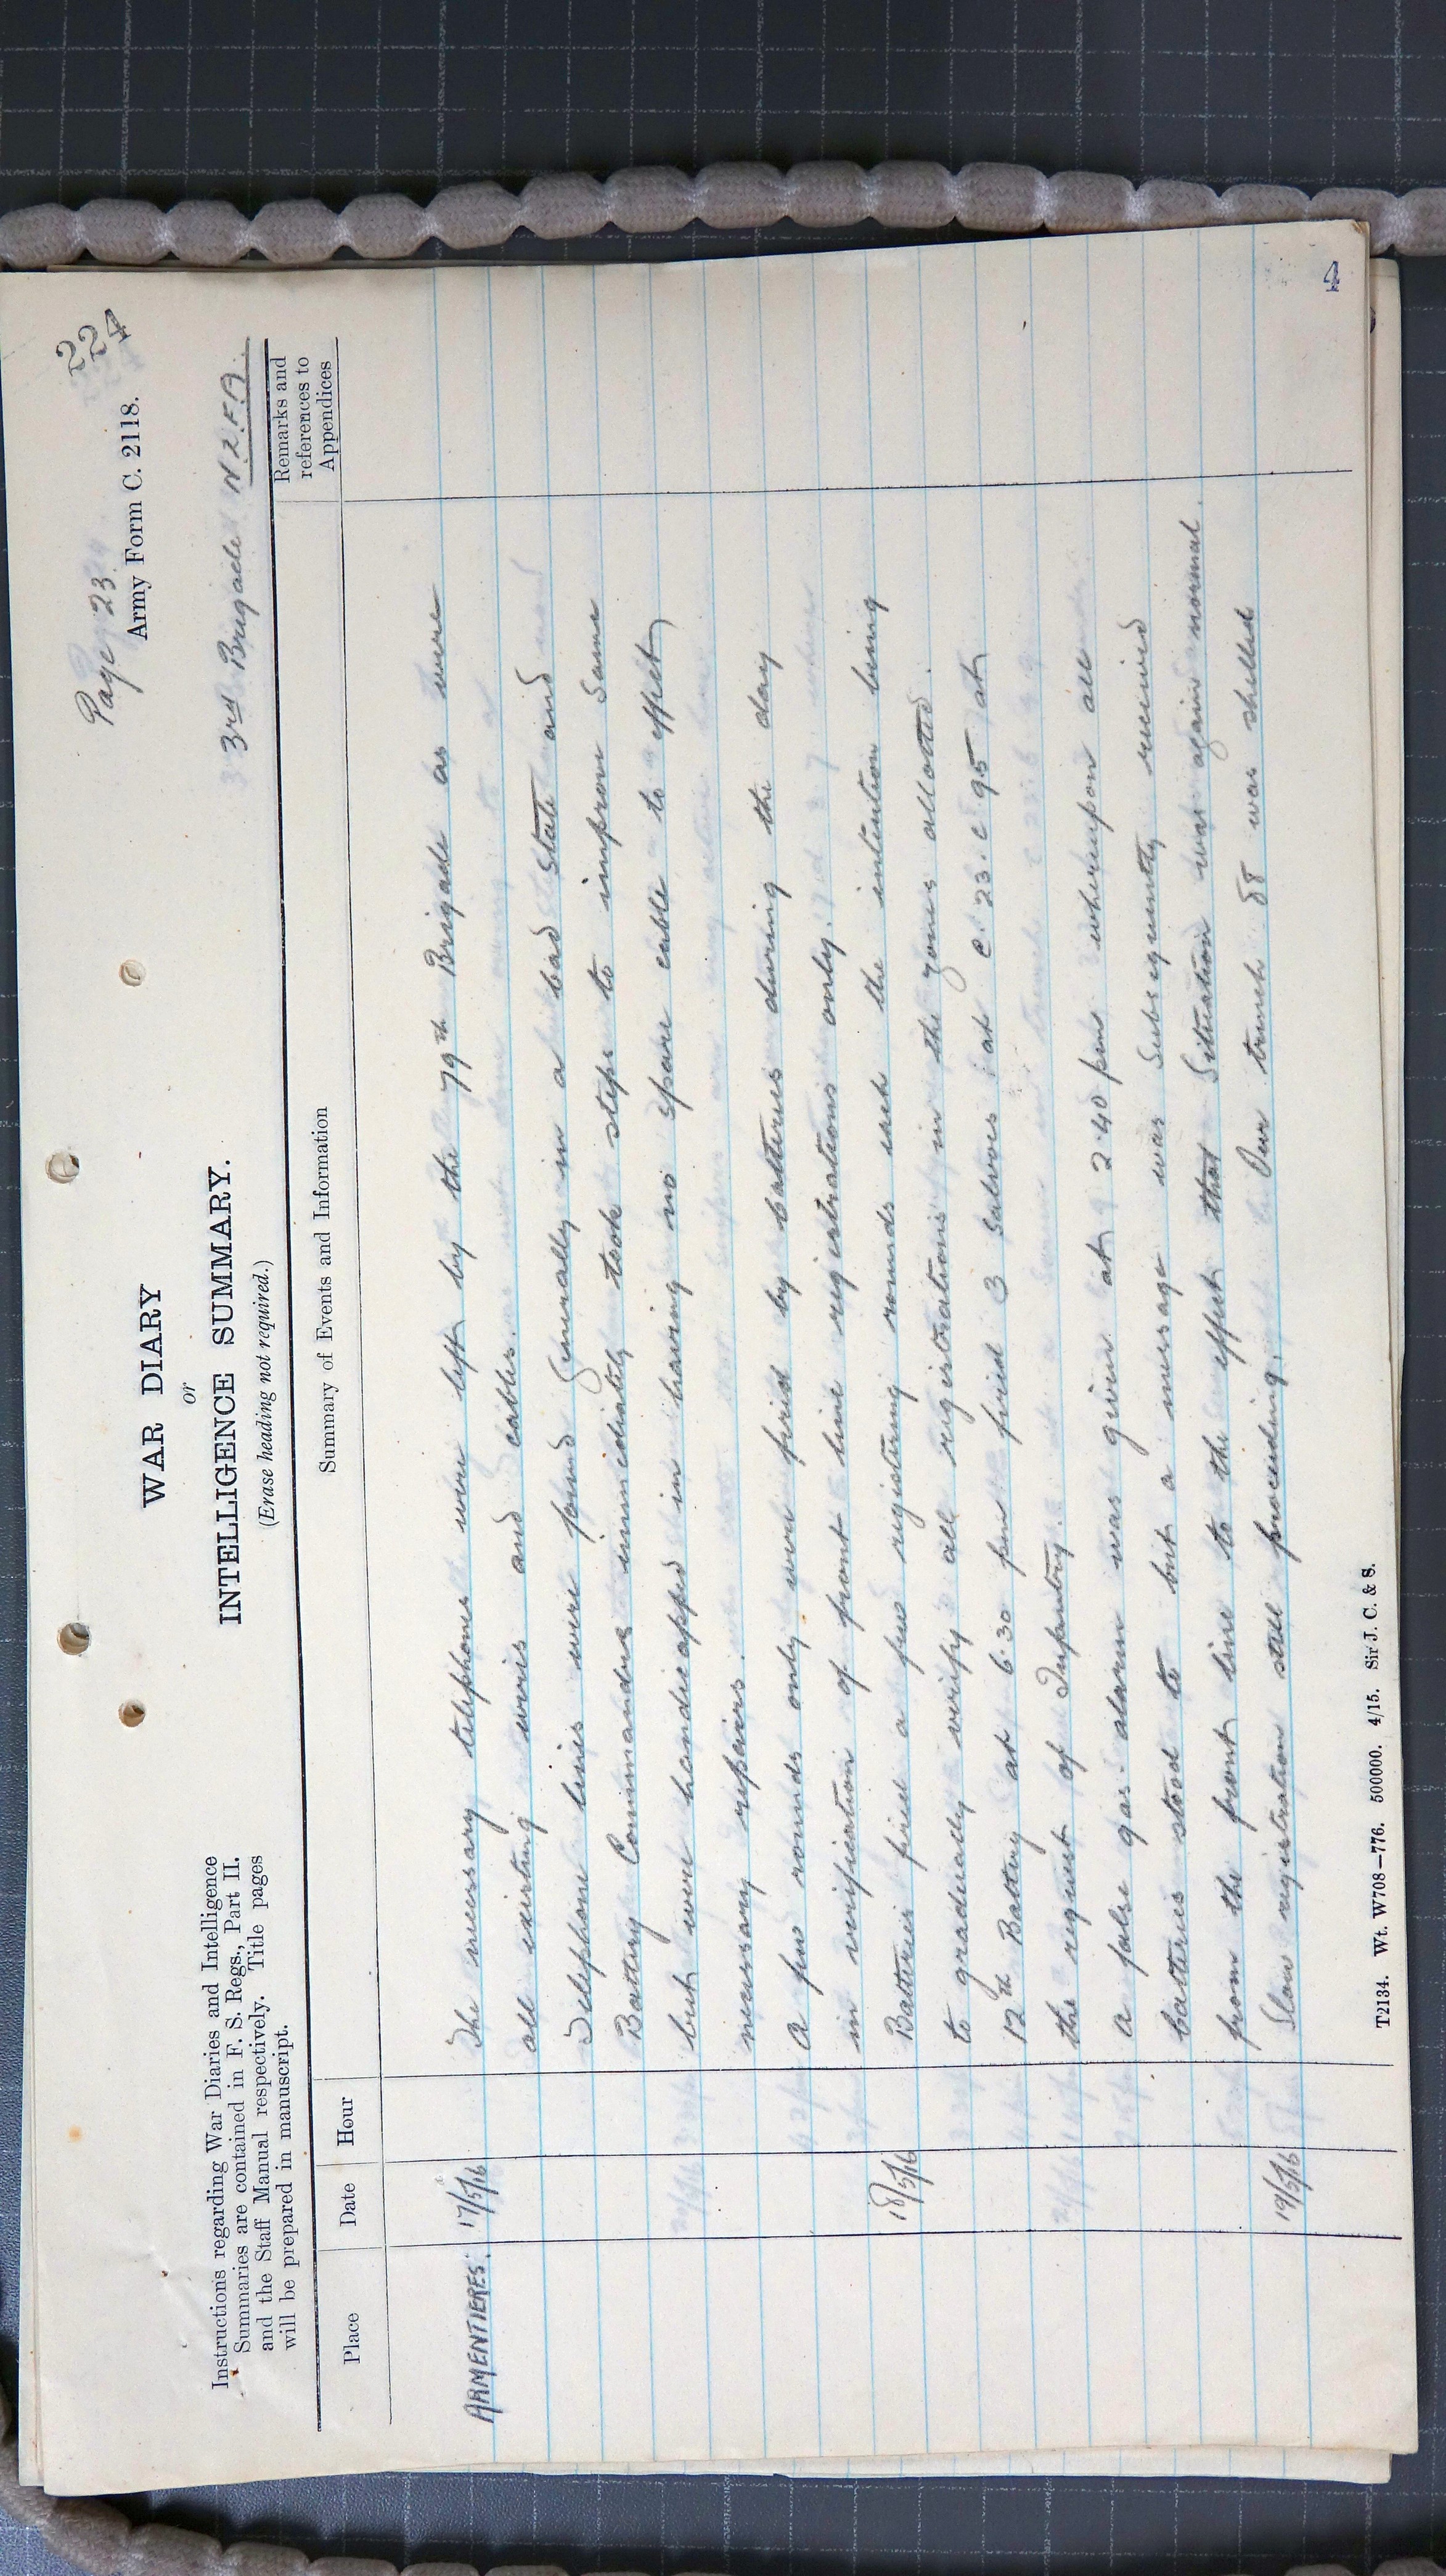 Page 23.
224
Army Form C. 2118.
WAR DIARY
or
INTELLIGENCE SUMMARY.
(Erase heading not required.)
Instructions regarding War Diaries and Intelligence
Summaries are contained in F. S. Regs., Part II.
and the Staff Manual respectively. Title pages
will be prepared in manuscript.
3rd Brigade N.Z.F.A.
Place
Date
Hour
Summary of Events and Information
Remarks and
references to
Appendices
ARMENTIERES. 17/5/16 The necessary telephones were left by the 79th Brigade as were
all existing wires and cables.
Telephone lines were found generally in a bad state and
Battery Commanders immediately took steps to improve same
but were handicapped in having no spare cable to effect
necessary repairs.
A few rounds only were fired by batteries during the day
in verification of front line registrations only.
18/5/16 Batteries fired a few registering rounds each the intention being
to gradually verify all registrations in the zones allotted.
12th Battery at 6.30 pm fired 3 salvoes at C.23.c 95 at
the request of Infantry.
A false gas-alarm was given at 2.40 pm whereupon all
batteries stood to but a message was subsequently received
from the front line to the effect that situation was again normal.
19/5/16 Slow registration still proceeding. Our trench 88 was shelled
T2134. Wt. W708—776. 500000. 4/15. Sir J. C. & S.
4